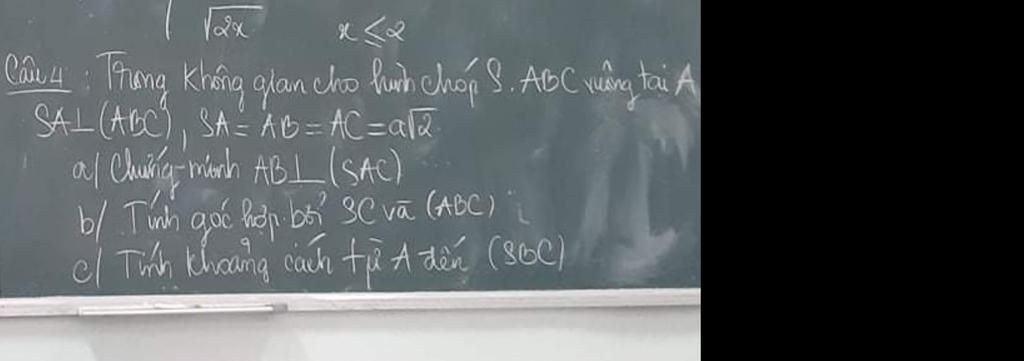 √2x x ≤ 2
Câu 4 : Trong không gian cho hình chóp S.ABC vuông tại A
SA⊥(ABC), SA = AB = AC = a√2
a/ Chứng minh AB⊥(SAC)
b/ Tính góc hợp bởi SC và (ABC)
c/ Tính khoảng cách từ A đến (SBC)